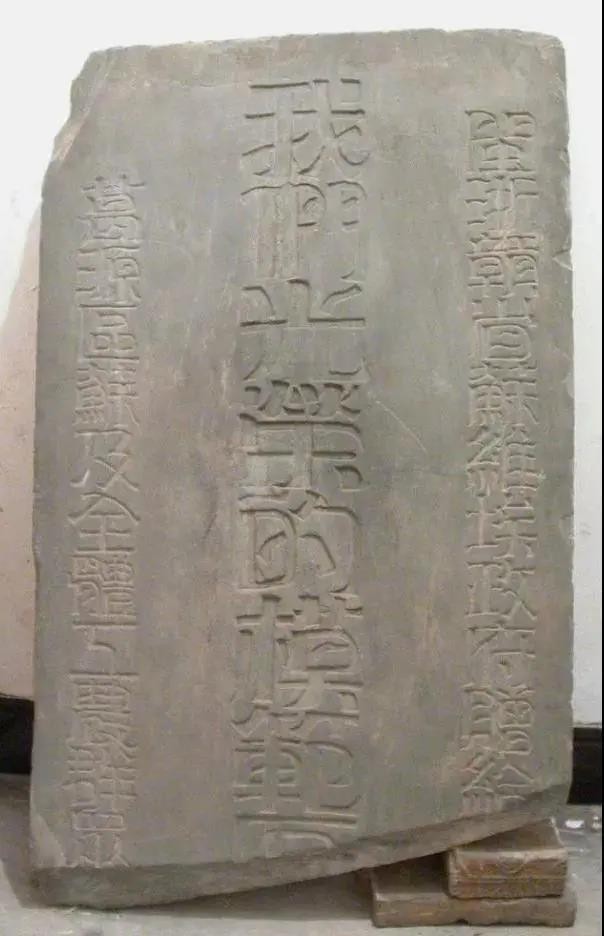 閩浙贛省蘇維埃政府贈給
我們光榮的模範
葛源區蘇及全體工農群眾